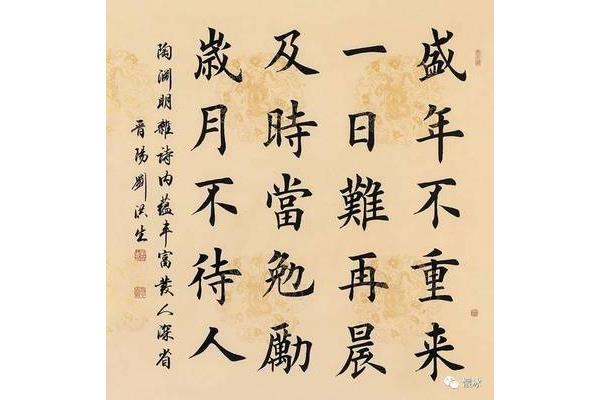 盛年不重来
一日難再晨
及時當勉勵
歲月不待人
陶渊明雜诗内蕴丰富發人深省
晋陽劉洪生
懷冰